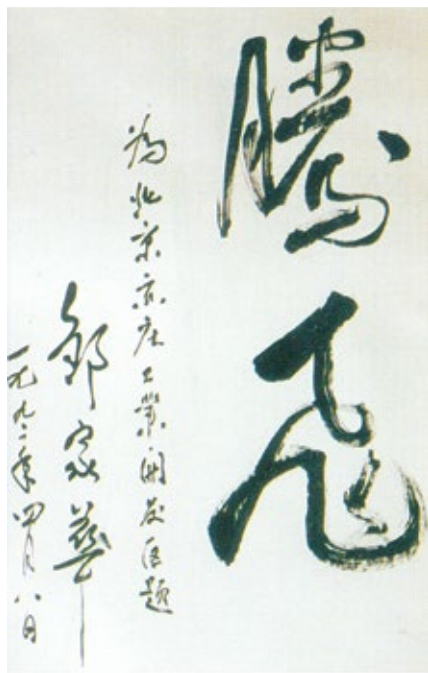 腾飞
为北京亦庄工业开发区题
邹家华
一九九二年四月八日